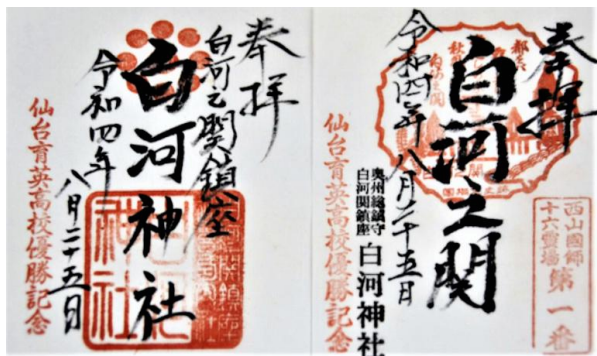 奉拝
白河之関鎮座
白河神社
令和四年
八月二十五日
仙台育英高校優勝記念
奉拝
白河之関
令和四年八月二十五日
奥州総鎮守
白河関鎮座
白河神社
仙台育英高校優勝記念
西山國師
十六霊場
第一番